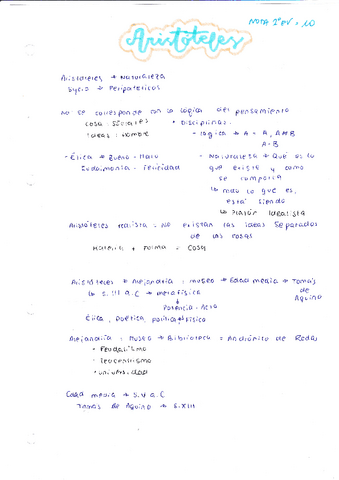 NOTA 1ªEV: 10
Aristóteles
Aristóteles → Naturaleza
Peripatéticos
No se corresponde con la lógica del pensamiento
cosa: Sócrates • Disciplinas:
ideas: Hombre - lógica → A = A, A≠B
A = B
- Ética → Bueno - Malo - Naturaleza → Qué es lo
Eudaimonia - Felicidad que existe y como
se comporta
↳ todo lo que es,
está siendo
↳ Platón idealista
Aristóteles realista: No existen las ideas separadas
de las cosas
Materia + Forma = Cosa
Aristóteles → Alejandría: museo → Edad media → Tomás
↳ S.III a.C → metafísica de
Potencia: Acto Aquino
Ética, poética, política, física
Alejandría: Museo → Biblioteca = Andrónico de Rodas
• Feudalismo
• Teocentrismo
• universidad
media → S.V a.C
Tomás de Aquino → S.XIII